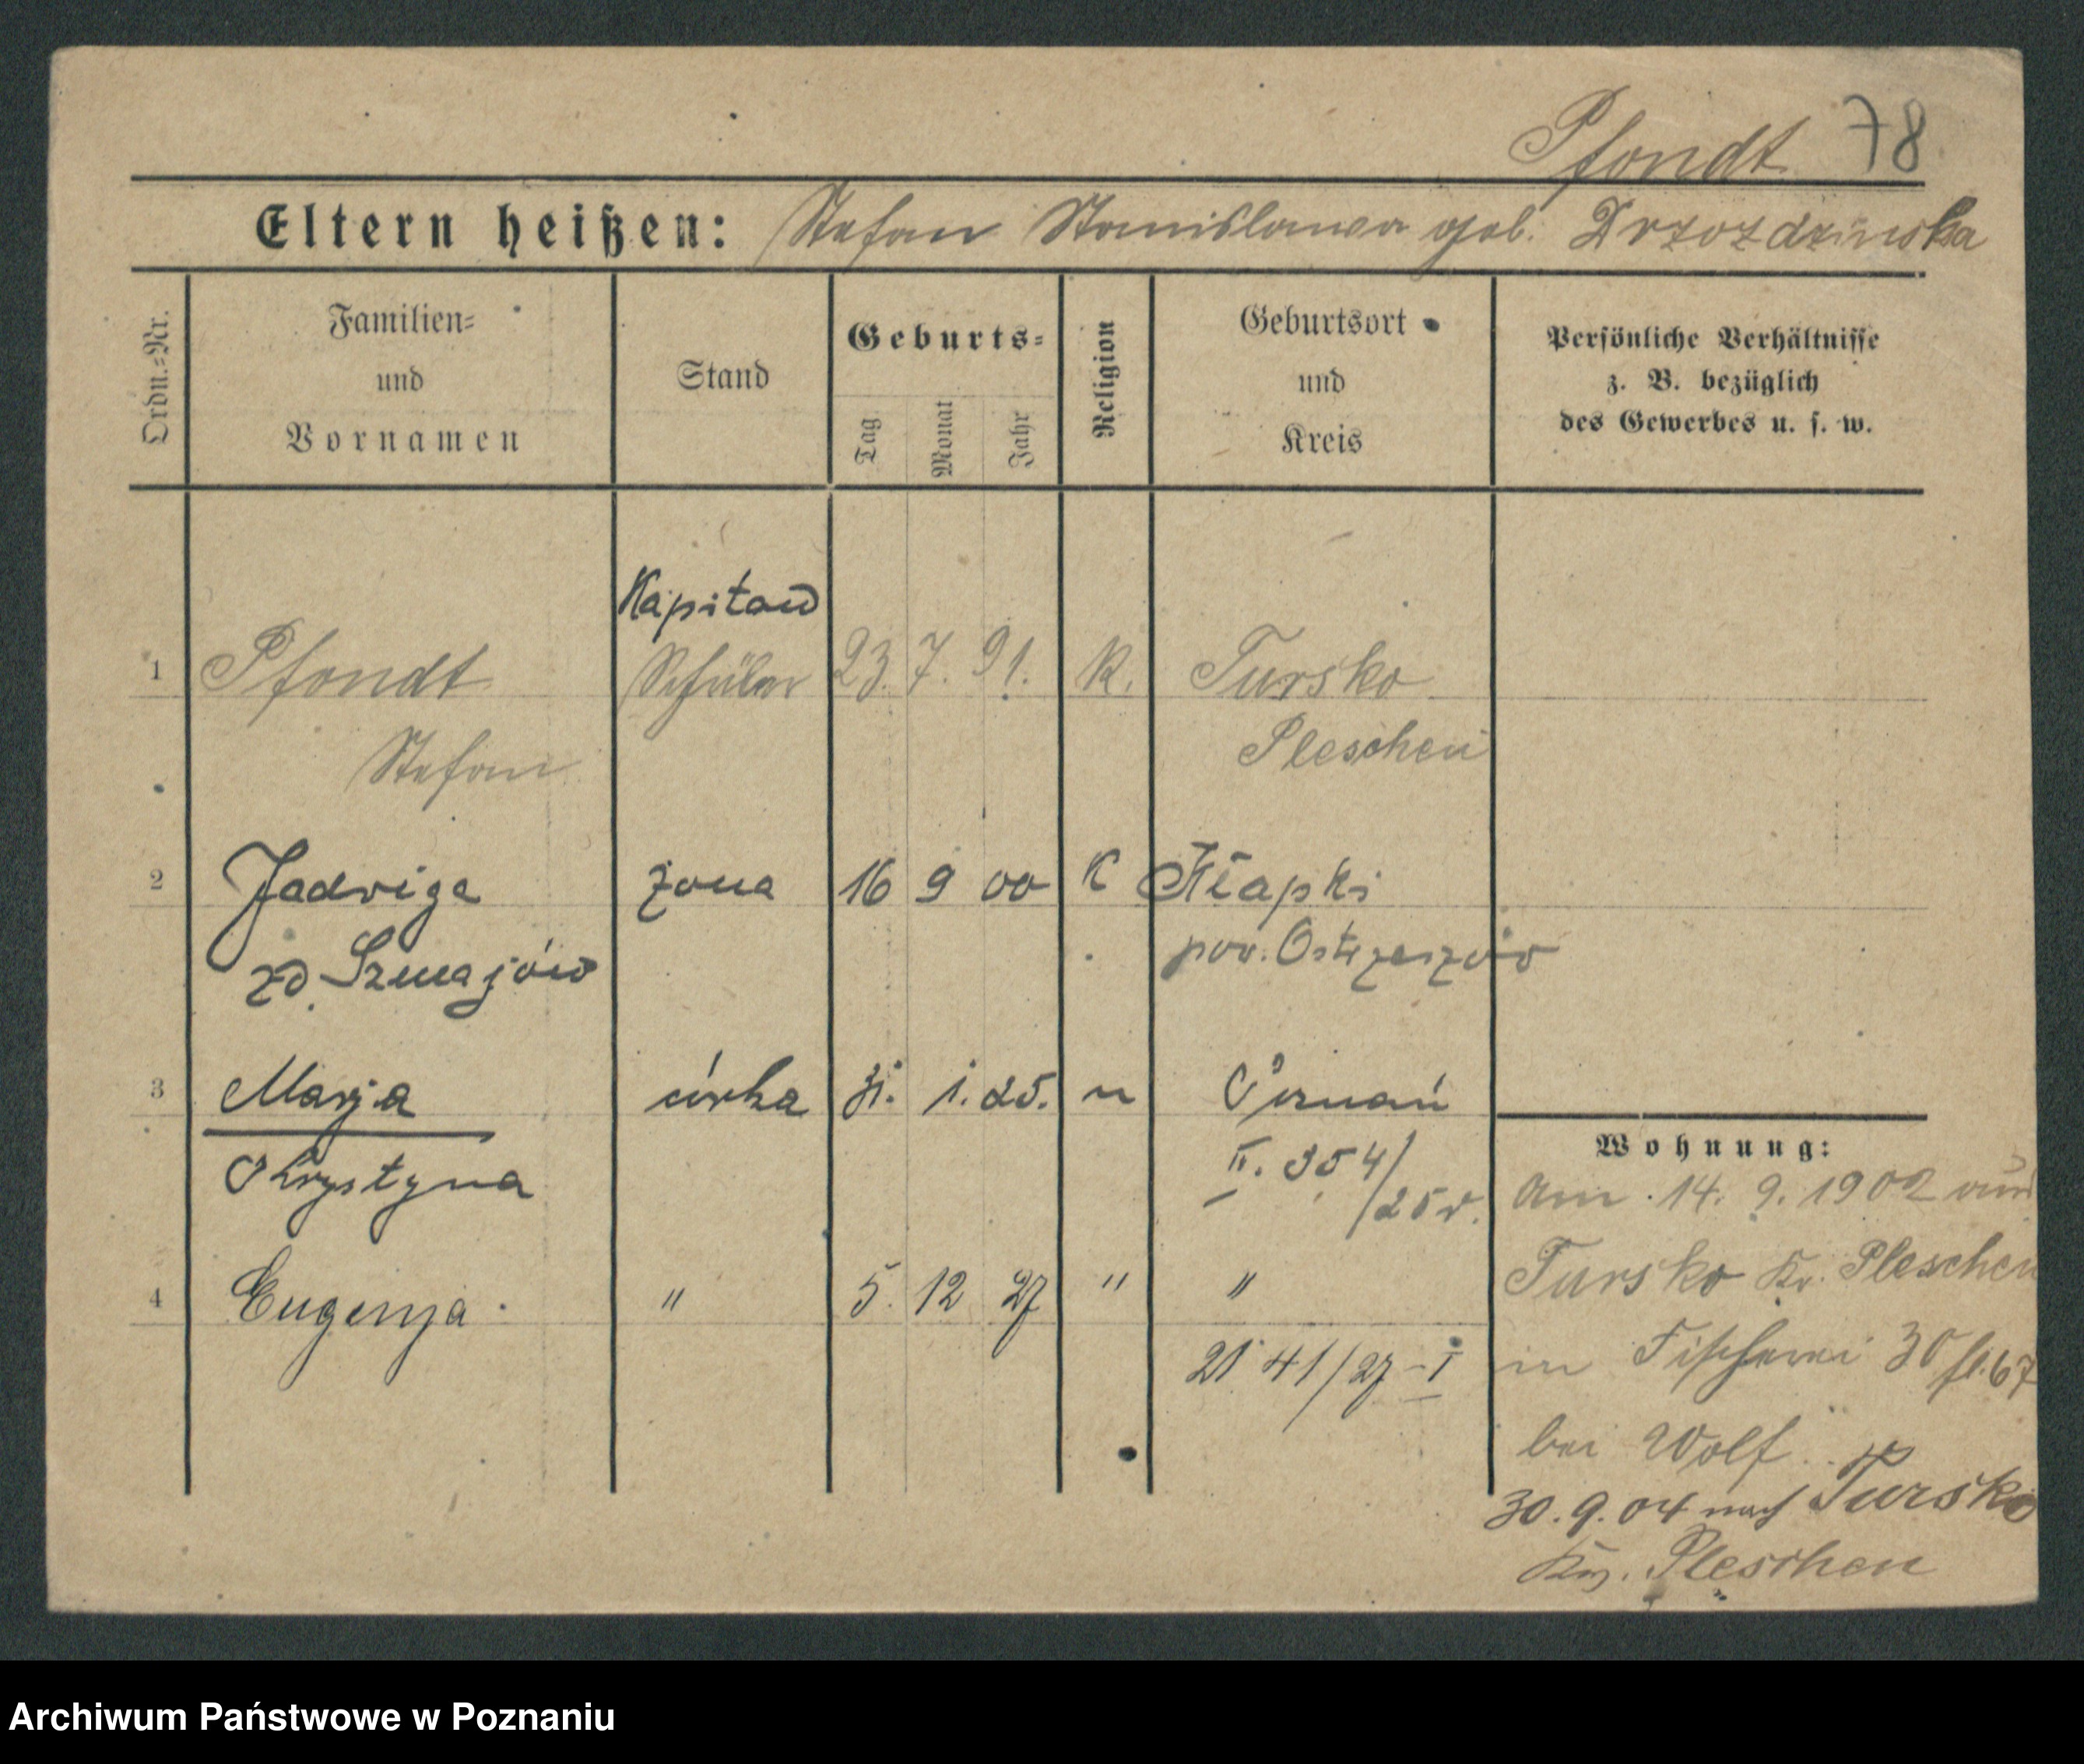 Pfondt 78
Eltern heißen: Stefan Stanislawa geb. Drzozdzinska
Ordn.-Nr.
Familien-
und
Vornamen
Stand
Geburts-
Tag
Monat
Jahr
Religion
Geburtsort
und
Kreis
Persönliche Verhältnisse
z. B. bezüglich
des Gewerbes u. s. w.
Kapitan
1 Pfondt Schüler 23. 7. 91. K. Tursko
Stefan Pleschen
2 Jadwiga żona 16 9 00 K Kłapki
zd. Szmajów pow. Ostrzeszów
3 Marja córka 31. 1. 25. " Poznań
Krystyna II. 354/
25 r.
4 Eugenja " 5. 12 27 " "
2141/27-I
Wohnung:
Am 14. 9. 1902 aus
Tursko Kr. Pleschen
in Fischerei 30 fl. 67
bei Wolf.
30. 9. 04 nach Tursko
Kr. Pleschen
Archiwum Państwowe w Poznaniu